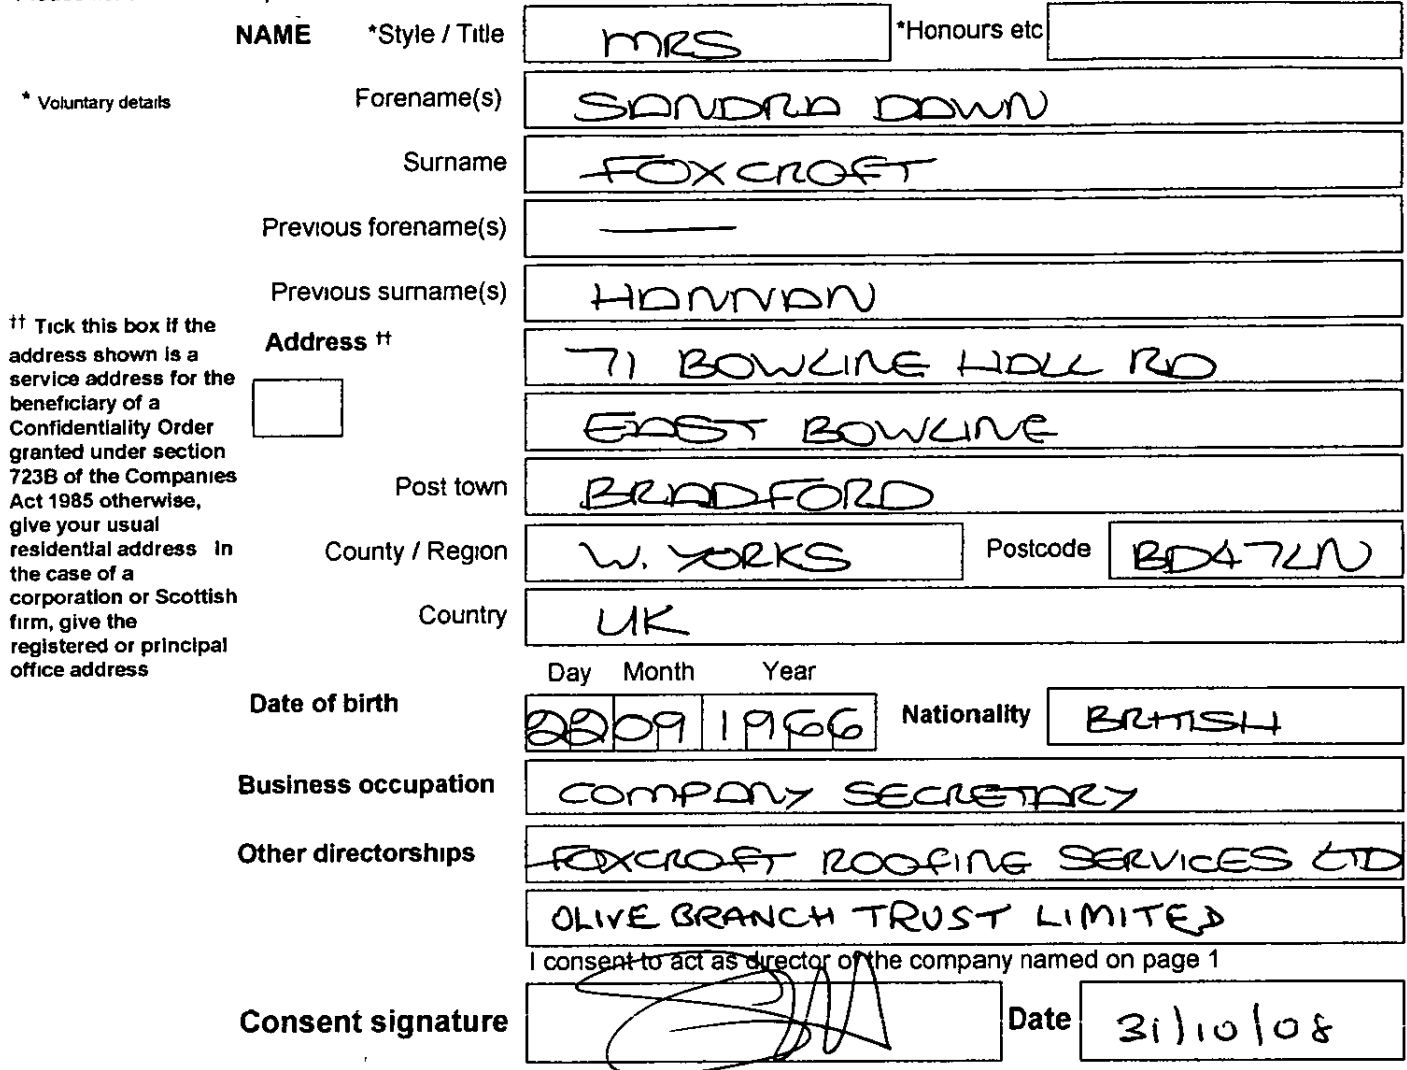 NAME *Style / Title MRS *Honours etc
* Voluntary details
Forename(s) SANDRA DAWN
Surname FOXCROFT
Previous forename(s) —
Previous surname(s) HANNAN
†† Tick this box if the
address shown is a
service address for the
beneficiary of a
Confidentiality Order
granted under section
723B of the Companies
Act 1985 otherwise,
give your usual
residential address In
the case of a
corporation or Scottish
firm, give the
registered or principal
office address
Address †† 71 BOWLINE HALL RD
EAST BOWLINE
Post town BRADFORD
County / Region W. YORKS Postcode BD4 7LN
Country UK
Day Month Year
Date of birth 22 09 1966 Nationality BRITISH
Business occupation COMPANY SECRETARY
Other directorships FOXCROFT ROOFING SERVICES LTD
OLIVE BRANCH TRUST LIMITED
I consent to act as director of the company named on page 1
Consent signature Date 31/10/08